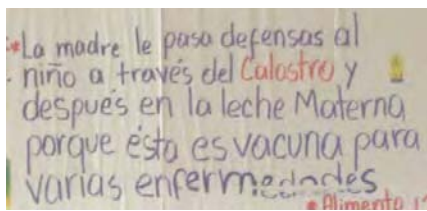 *La madre le pasa defensas al
niño a través del Calostro y
después en la leche Materna
porque ésta es vacuna para
varias enfermedades
* Alimento